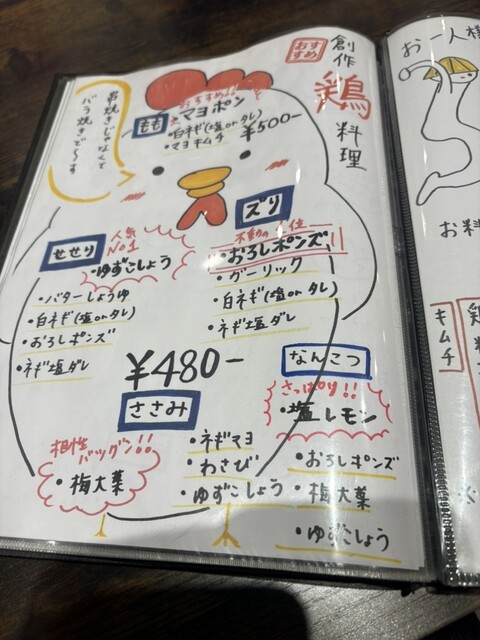 おすすめ
創作
鶏
料理
串焼きじゃなくて
バラ焼きで〜す
もも
おすすめ!!
・マヨポン
・白ネギ(塩orタレ)
・マヨキムチ
¥500-
せせり
人気
No.1
・ゆずこしょう
・バターしょうゆ
・白ネギ(塩orタレ)
・おろしポンズ
・ネギ塩ダレ
ズリ
不動の1位
・おろしポンズ
・ガーリック
・白ネギ(塩orタレ)
・ネギ塩ダレ
¥480-
ささみ
相性
バツグン!!
・梅大葉
・ネギマヨ
・わさび
・ゆずこしょう
なんこつ
さっぱり!!
・塩レモン
・おろしポンズ
・梅大葉
・ゆずこしょう
お一人様
お料
キムチ